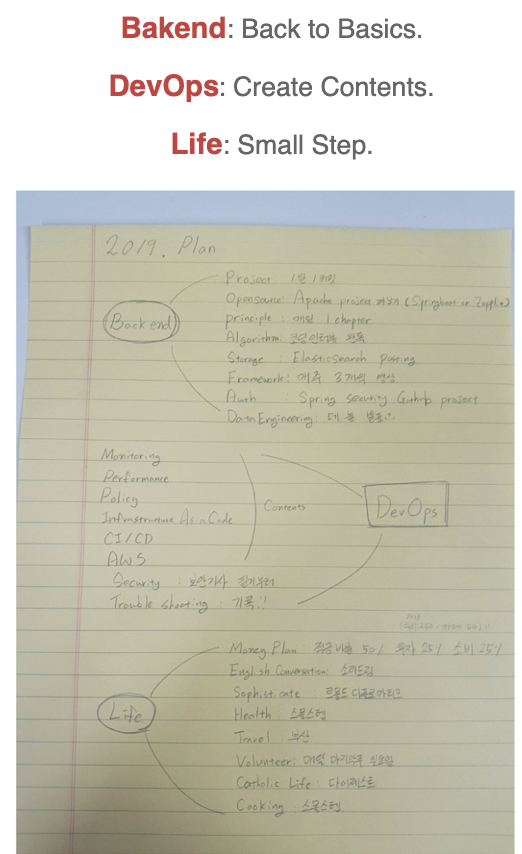 Bakend: Back to Basics.
DevOps: Create Contents.
Life: Small Step.
2019. Plan
Backend
Project 1인 1커밋
Opensource: Apache project (Springboot or Zepplin)
principle : 매일 1 chapter
Algorithm: 코딩인터뷰 완독
Storage : ElasticSearch Posting
Framework: 매주 3개의 영상
Auth : Spring security Github project
Data Engineering:
Monitoring
Performance
Policy
Infrastructure As a Code
CI/CD
AWS
Contents
DevOps
Security : 보안기사 필기부터
Trouble shooting : 기록!!
Life
Money Plan : 적금비율 50% 투자 25% 소비 25%
English Conversation: 소리드림
Sophisticate :
Health : 스몰스텝
Travel : 부산
Volunteer: 매월 마지막주 일요일
Catholic Life : 다이제스트
Cooking : 스몰스텝